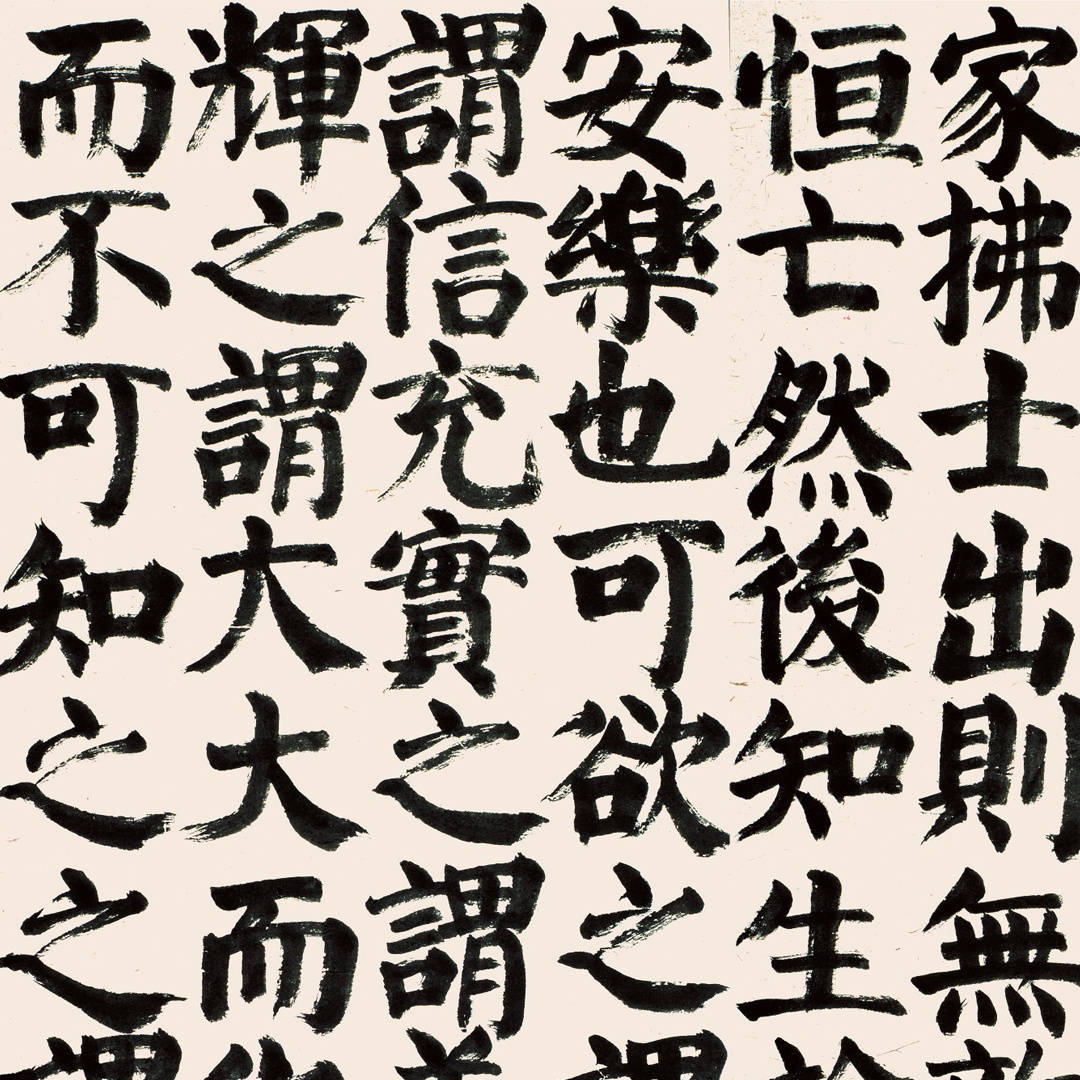 家拂士出則無敵
恒亡然後知生於
安樂也可欲之謂
謂信充實之謂美
輝之謂大大而化
而不可知之之謂